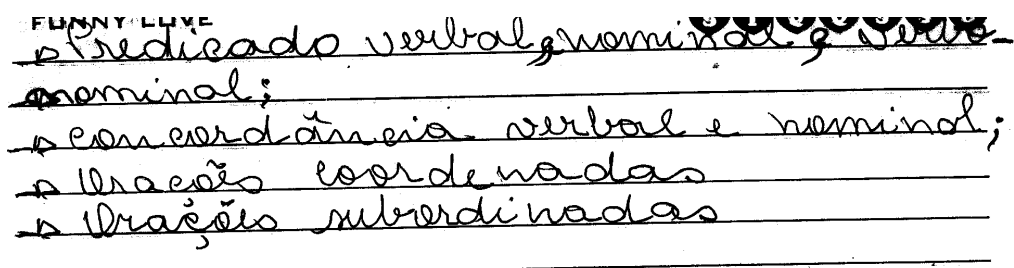 FUNNY LOVE
→ Predicado verbal, nominal e verbo-
nominal;
→ concordância verbal e nominal;
→ Oracões coordenadas
→ Orações subordinadas